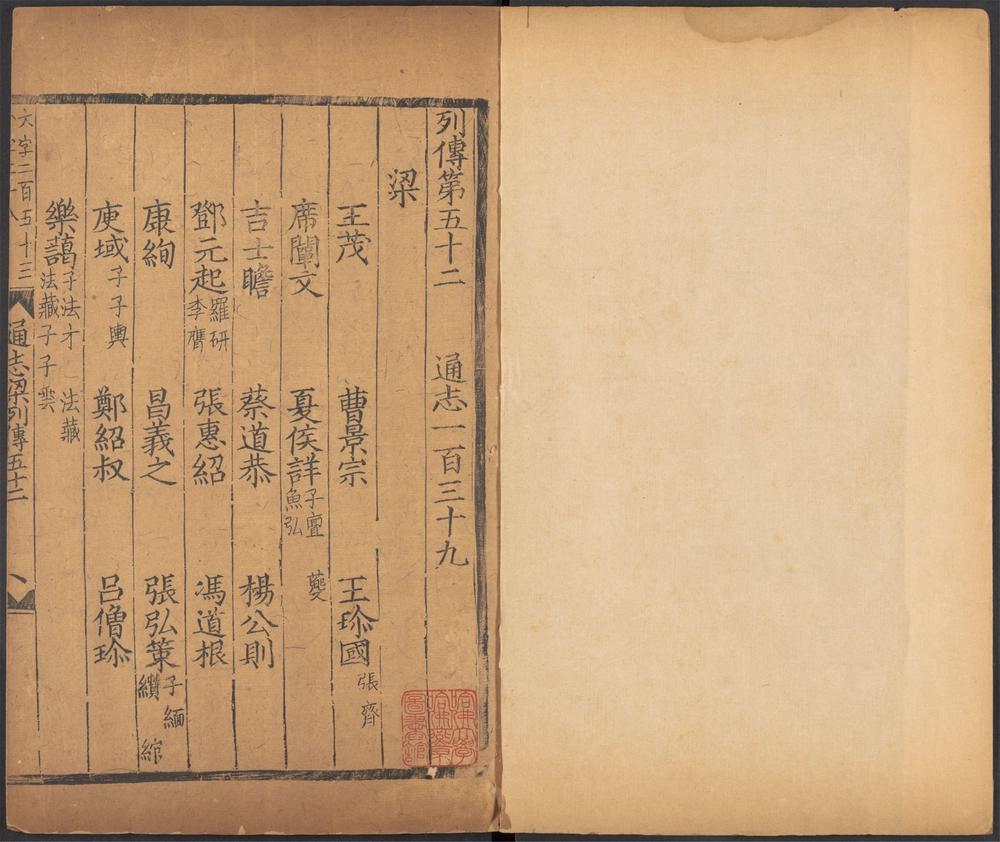 列傳第五十二　通志一百三十九
梁
王茂　曹景宗　王珎國張齊
席闡文　夏侯詳子亶　夔魚弘
吉士瞻　蔡道恭　楊公則
鄧元起羅研李膺　張惠紹　馮道根
康絢　昌義之　張弘策子緬纘綰
庾域子子輿　鄭紹叔　吕僧珎
樂藹子法才　法藏法藏子子雲
六字二百五十三
通志梁列傳五十二
哈佛大學哈佛燕京圖書館